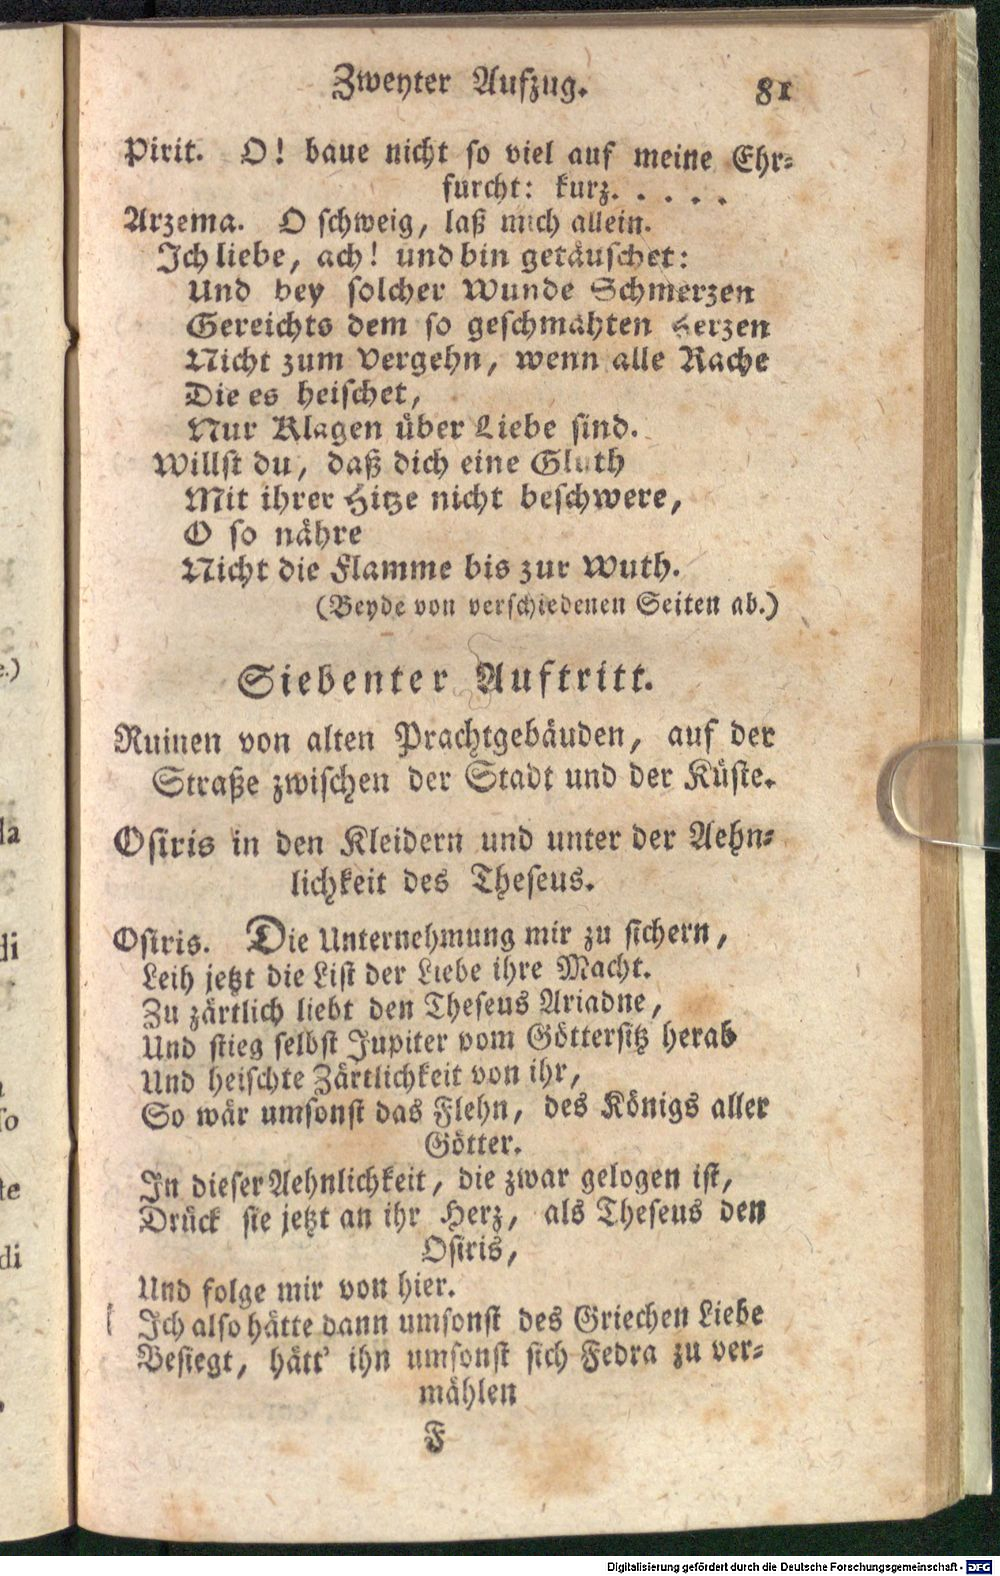 Zweyter Aufzug. 81
Pirit. O! baue nicht so viel auf meine Ehr-
furcht: kurz. . . . .
Arzema. O schweig, laß mich allein.
Ich liebe, ach! und bin getäuschet:
Und bey solcher Wunde Schmerzen
Gereichts dem so geschmähten Herzen
Nicht zum Vergehn, wenn alle Rache
Die es heischet,
Nur Klagen über Liebe sind.
Willst du, daß dich eine Gluth
Mit ihrer Hitze nicht beschwere,
O so nähre
Nicht die Flamme bis zur Wuth.
(Beyde von verschiedenen Seiten ab.)
Siebenter Auftritt.
Ruinen von alten Prachtgebäuden, auf der
Straße zwischen der Stadt und der Küste.
Osiris in den Kleidern und unter der Aehn-
lichkeit des Theseus.
Osiris. Die Unternehmung mir zu sichern,
Leih jetzt die List der Liebe ihre Macht.
Zu zärtlich liebt den Theseus Ariadne,
Und stieg selbst Jupiter vom Göttersitz herab
Und heischte Zärtlichkeit von ihr,
So wär umsonst das Flehn, des Königs aller
Götter.
In dieser Aehnlichkeit, die zwar gelogen ist,
Drück sie jetzt an ihr Herz, als Theseus den
Osiris,
Und folge mir von hier.
Ich also hätte dann umsonst des Griechen Liebe
Besiegt, hätt' ihn umsonst sich Fedra zu ver-
mählen
F
e.)
la
di
so
te
di
Digitalisierung gefördert durch die Deutsche Forschungsgemeinschaft - DFG